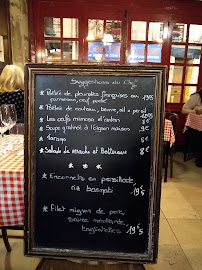 Suggestions du Chef
Poêlée de pleurotes françaises en
parmesan, œuf poché 13,5
Poêlée de couteaux, beurre, ail & persil
Les œufs mimosa d'antan
Soupe gratinée à l'oignon maison 9€
Mâche et Betterave 8€
Encornets en persillade,
riz basmati 19,5
Filet mignon de porc,
sauce moutarde,
tagliatelles 19,5